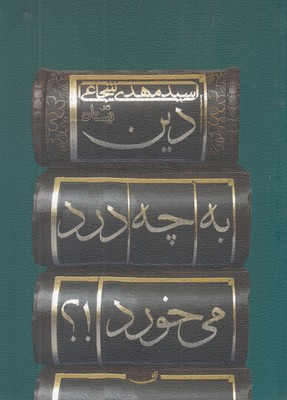 سیدمهدی شجاعی
دین
به چه درد
می‌خورد !؟